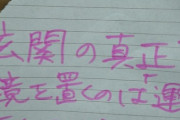 玄関の真正
鏡を置くのは運